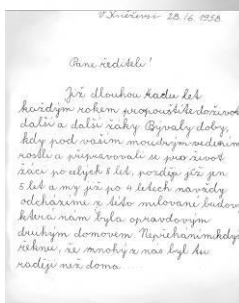 V Kněževsi 28.6.1958
Pane řediteli!
Již dlouhou řadu let
každým rokem propouštíte do život
další a další žáky. Bývaly doby,
kdy pod vaším moudrým vedením
rostli a připravovali se pro život
žáci po celých 8 let, později již jen
5 let a my již po 4 letech navždy
odcházíme z této milované budovy
která nám byla opravdovým
druhým domovem. Nepřeháním když
řeknu, že mnohý z nás byl tu
raději než doma ....